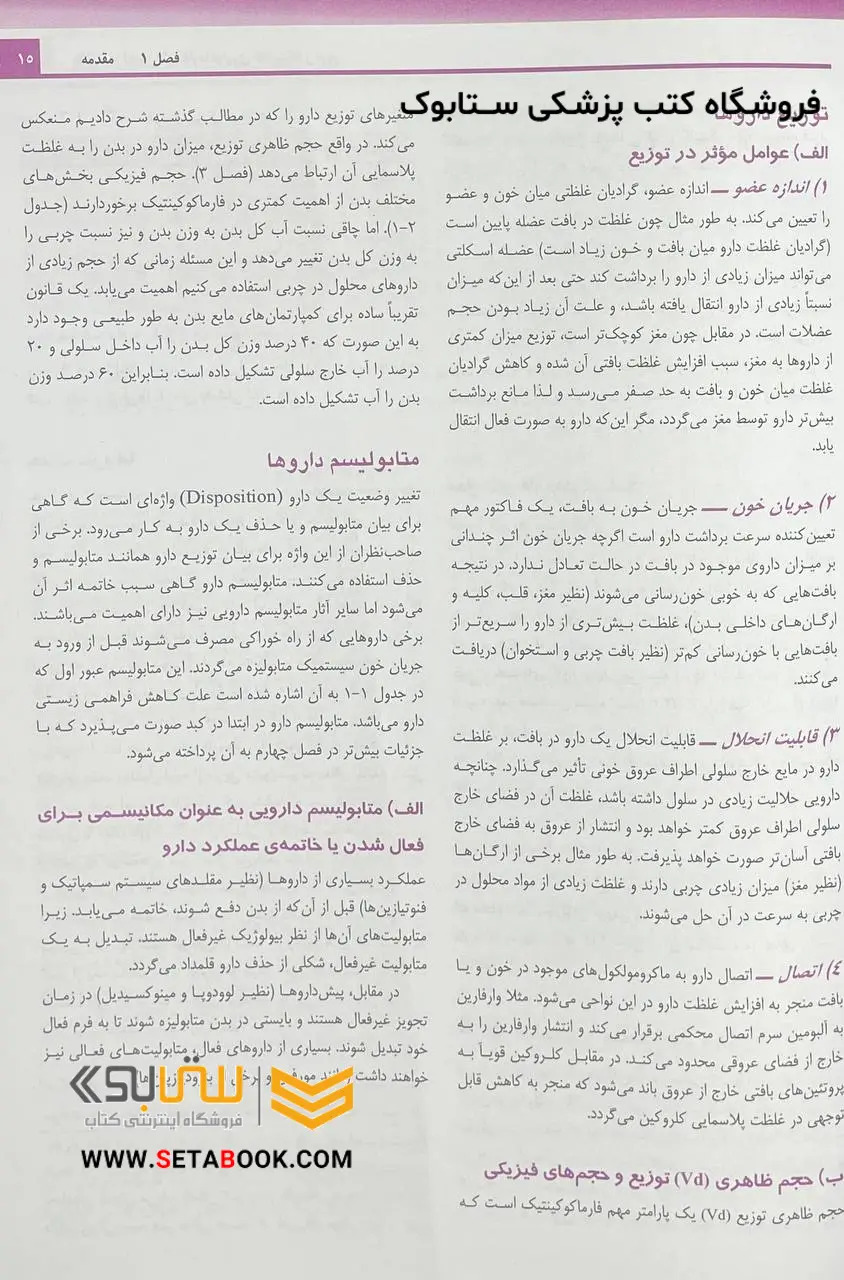 فصل ۱ مقدمه ۱۵
فروشگاه کتب پزشکی ستابوک
توزیع داروها
الف) عوامل مؤثر در توزیع
۱) اندازه عضو ــ اندازه عضو، گرادیان غلظتی میان خون و عضو
را تعیین می‌کند. به طور مثال چون غلظت در بافت عضله پایین است
(گرادیان غلظت دارو میان بافت و خون زیاد است) عضله اسکلتی
می‌تواند میزان زیادی از دارو را برداشت کند حتی بعد از این‌که میزان
نسبتاً زیادی از دارو انتقال یافته باشد، و علت آن زیاد بودن حجم
عضلات است. در مقابل چون مغز کوچک‌تر است، توزیع میزان کمتری
از داروها به مغز، سبب افزایش غلظت بافتی آن شده و کاهش گرادیان
غلظت میان خون و بافت به حد صفر می‌رسد و لذا مانع برداشت
بیش‌تر دارو توسط مغز می‌گردد، مگر این‌که دارو به صورت فعال انتقال
یابد.
۲) جریان خون ــ جریان خون به بافت، یک فاکتور مهم
تعیین‌کننده سرعت برداشت دارو است اگرچه جریان خون اثر چندانی
بر میزان داروی موجود در بافت در حالت تعادل ندارد. در نتیجه
بافت‌هایی که به خوبی خون‌رسانی می‌شوند (نظیر مغز، قلب، کلیه و
ارگان‌های داخلی بدن)، غلظت بیش‌تری از دارو را سریع‌تر از
بافت‌هایی با خون‌رسانی کم‌تر (نظیر بافت چربی و استخوان) دریافت
می‌کنند.
۳) قابلیت انحلال ــ قابلیت انحلال یک دارو در بافت، بر غلظت
دارو در مایع خارج سلولی اطراف عروق خونی تأثیر می‌گذارد. چنانچه
دارویی حلالیت زیادی در سلول داشته باشد، غلظت آن در فضای خارج
سلولی اطراف عروق کمتر خواهد بود و انتشار از عروق به فضای خارج
بافتی آسان‌تر صورت خواهد پذیرفت. به طور مثال برخی از ارگان‌ها
(نظیر مغز) میزان زیادی چربی دارند و غلظت زیادی از مواد محلول در
چربی به سرعت در آن حل می‌شوند.
۴) اتصال ــ اتصال دارو به ماکرومولکول‌های موجود در خون و یا
بافت منجر به افزایش غلظت دارو در این نواحی می‌شود. مثلا وارفارین
به آلبومین سرم اتصال محکمی برقرار می‌کند و انتشار وارفارین را به
خارج از فضای عروقی محدود می‌کند. در مقابل کلروکین قویاً به
پروتئین‌های بافتی خارج از عروق باند می‌شود که منجر به کاهش قابل
توجهی در غلظت پلاسمایی کلروکین می‌گردد.
ب) حجم ظاهری (Vd) توزیع و حجم‌های فیزیکی
حجم ظاهری توزیع (Vd) یک پارامتر مهم فارماکوکینتیک است که
متغیرهای توزیع دارو را که در مطالب گذشته شرح دادیم منعکس
می‌کند. در واقع حجم ظاهری توزیع، میزان دارو در بدن را به غلظت
پلاسمایی آن ارتباط می‌دهد (فصل ۳). حجم فیزیکی بخش‌های
مختلف بدن از اهمیت کمتری در فارماکوکینتیک برخوردارند (جدول
۲-۱). اما چاقی نسبت آب کل بدن به وزن بدن و نیز نسبت چربی را
به وزن کل بدن تغییر می‌دهد و این مسئله زمانی که از حجم زیادی از
داروهای محلول در چربی استفاده می‌کنیم اهمیت می‌یابد. یک قانون
تقریباً ساده برای کمپارتمان‌های مایع بدن به طور طبیعی وجود دارد
به این صورت که ۴۰ درصد وزن کل بدن را آب داخل سلولی و ۲۰
درصد را آب خارج سلولی تشکیل داده است. بنابراین ۶۰ درصد وزن
بدن را آب تشکیل داده است.
متابولیسم داروها
تغییر وضعیت یک دارو (Disposition) واژه‌ای است که گاهی
برای بیان متابولیسم و یا حذف یک دارو به کار می‌رود. برخی از
صاحب‌نظران از این واژه برای بیان توزیع دارو همانند متابولیسم و
حذف استفاده می‌کنند. متابولیسم دارو گاهی سبب خاتمه اثر آن
می‌شود اما سایر آثار متابولیسم دارویی نیز دارای اهمیت می‌باشند.
برخی داروهایی که از راه خوراکی مصرف می‌شوند قبل از ورود به
جریان خون سیستمیک متابولیزه می‌گردند. این متابولیسم عبور اول که
در جدول ۱-۱ به آن اشاره شده است علت کاهش فراهمی زیستی
دارو می‌باشد. متابولیسم دارو در ابتدا در کبد صورت می‌پذیرد که با
جزئیات بیش‌تر در فصل چهارم به آن پرداخته می‌شود.
الف) متابولیسم دارویی به عنوان مکانیسمی برای
فعال شدن یا خاتمه‌ی عملکرد دارو
عملکرد بسیاری از داروها (نظیر مقلدهای سیستم سمپاتیک و
فنوتیازین‌ها) قبل از آن‌که از بدن دفع شوند، خاتمه می‌یابد. زیرا
متابولیت‌های آن‌ها از نظر بیولوژیک غیرفعال هستند. تبدیل به یک
متابولیت غیرفعال، شکلی از حذف دارو قلمداد می‌گردد.
در مقابل، پیش‌داروها (نظیر لوودوپا و مینوکسیدیل) در زمان
تجویز غیرفعال هستند و بایستی در بدن متابولیزه شوند تا به فرم فعال
خود تبدیل شوند. بسیاری از داروهای فعال، متابولیت‌های فعالی نیز
خواهند داشت (مانند مورفین و برخی
ستابوک
فروشگاه اینترنتی کتاب
WWW.SETABOOK.COM